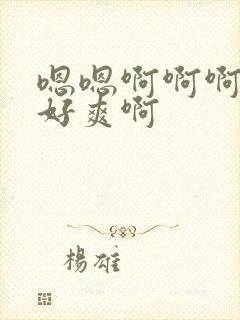 嗯嗯啊啊啊
好爽啊
楊雄